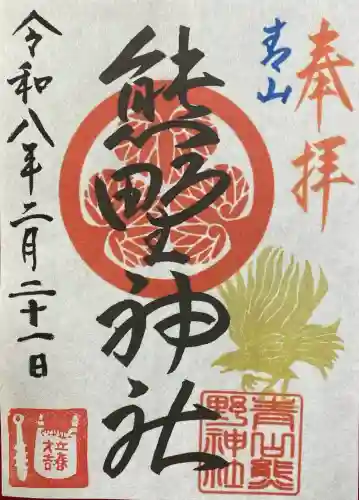 奉拝
青山
熊野神社
令和八年二月二十一日
青山熊
野神社